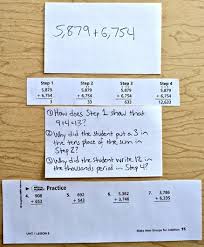 5,879+6,754
Step 1 Step 2 Step 3 Step 4
5,879 5,879 5,879 5,879
+ 6,754 + 6,754 + 6,754 + 6,754
3 33 633 12,633
① How does Step 1 show that
9+4=13?
② Why did the student put a 3 in
the tens place of the sum in
Step 2?
③ Why did the student write 12 in
the thousands period in Step 4?
Practice
4. 908 5. 6. 7.
UNIT 1 LESSON 6 Make New Groups for Addition 15